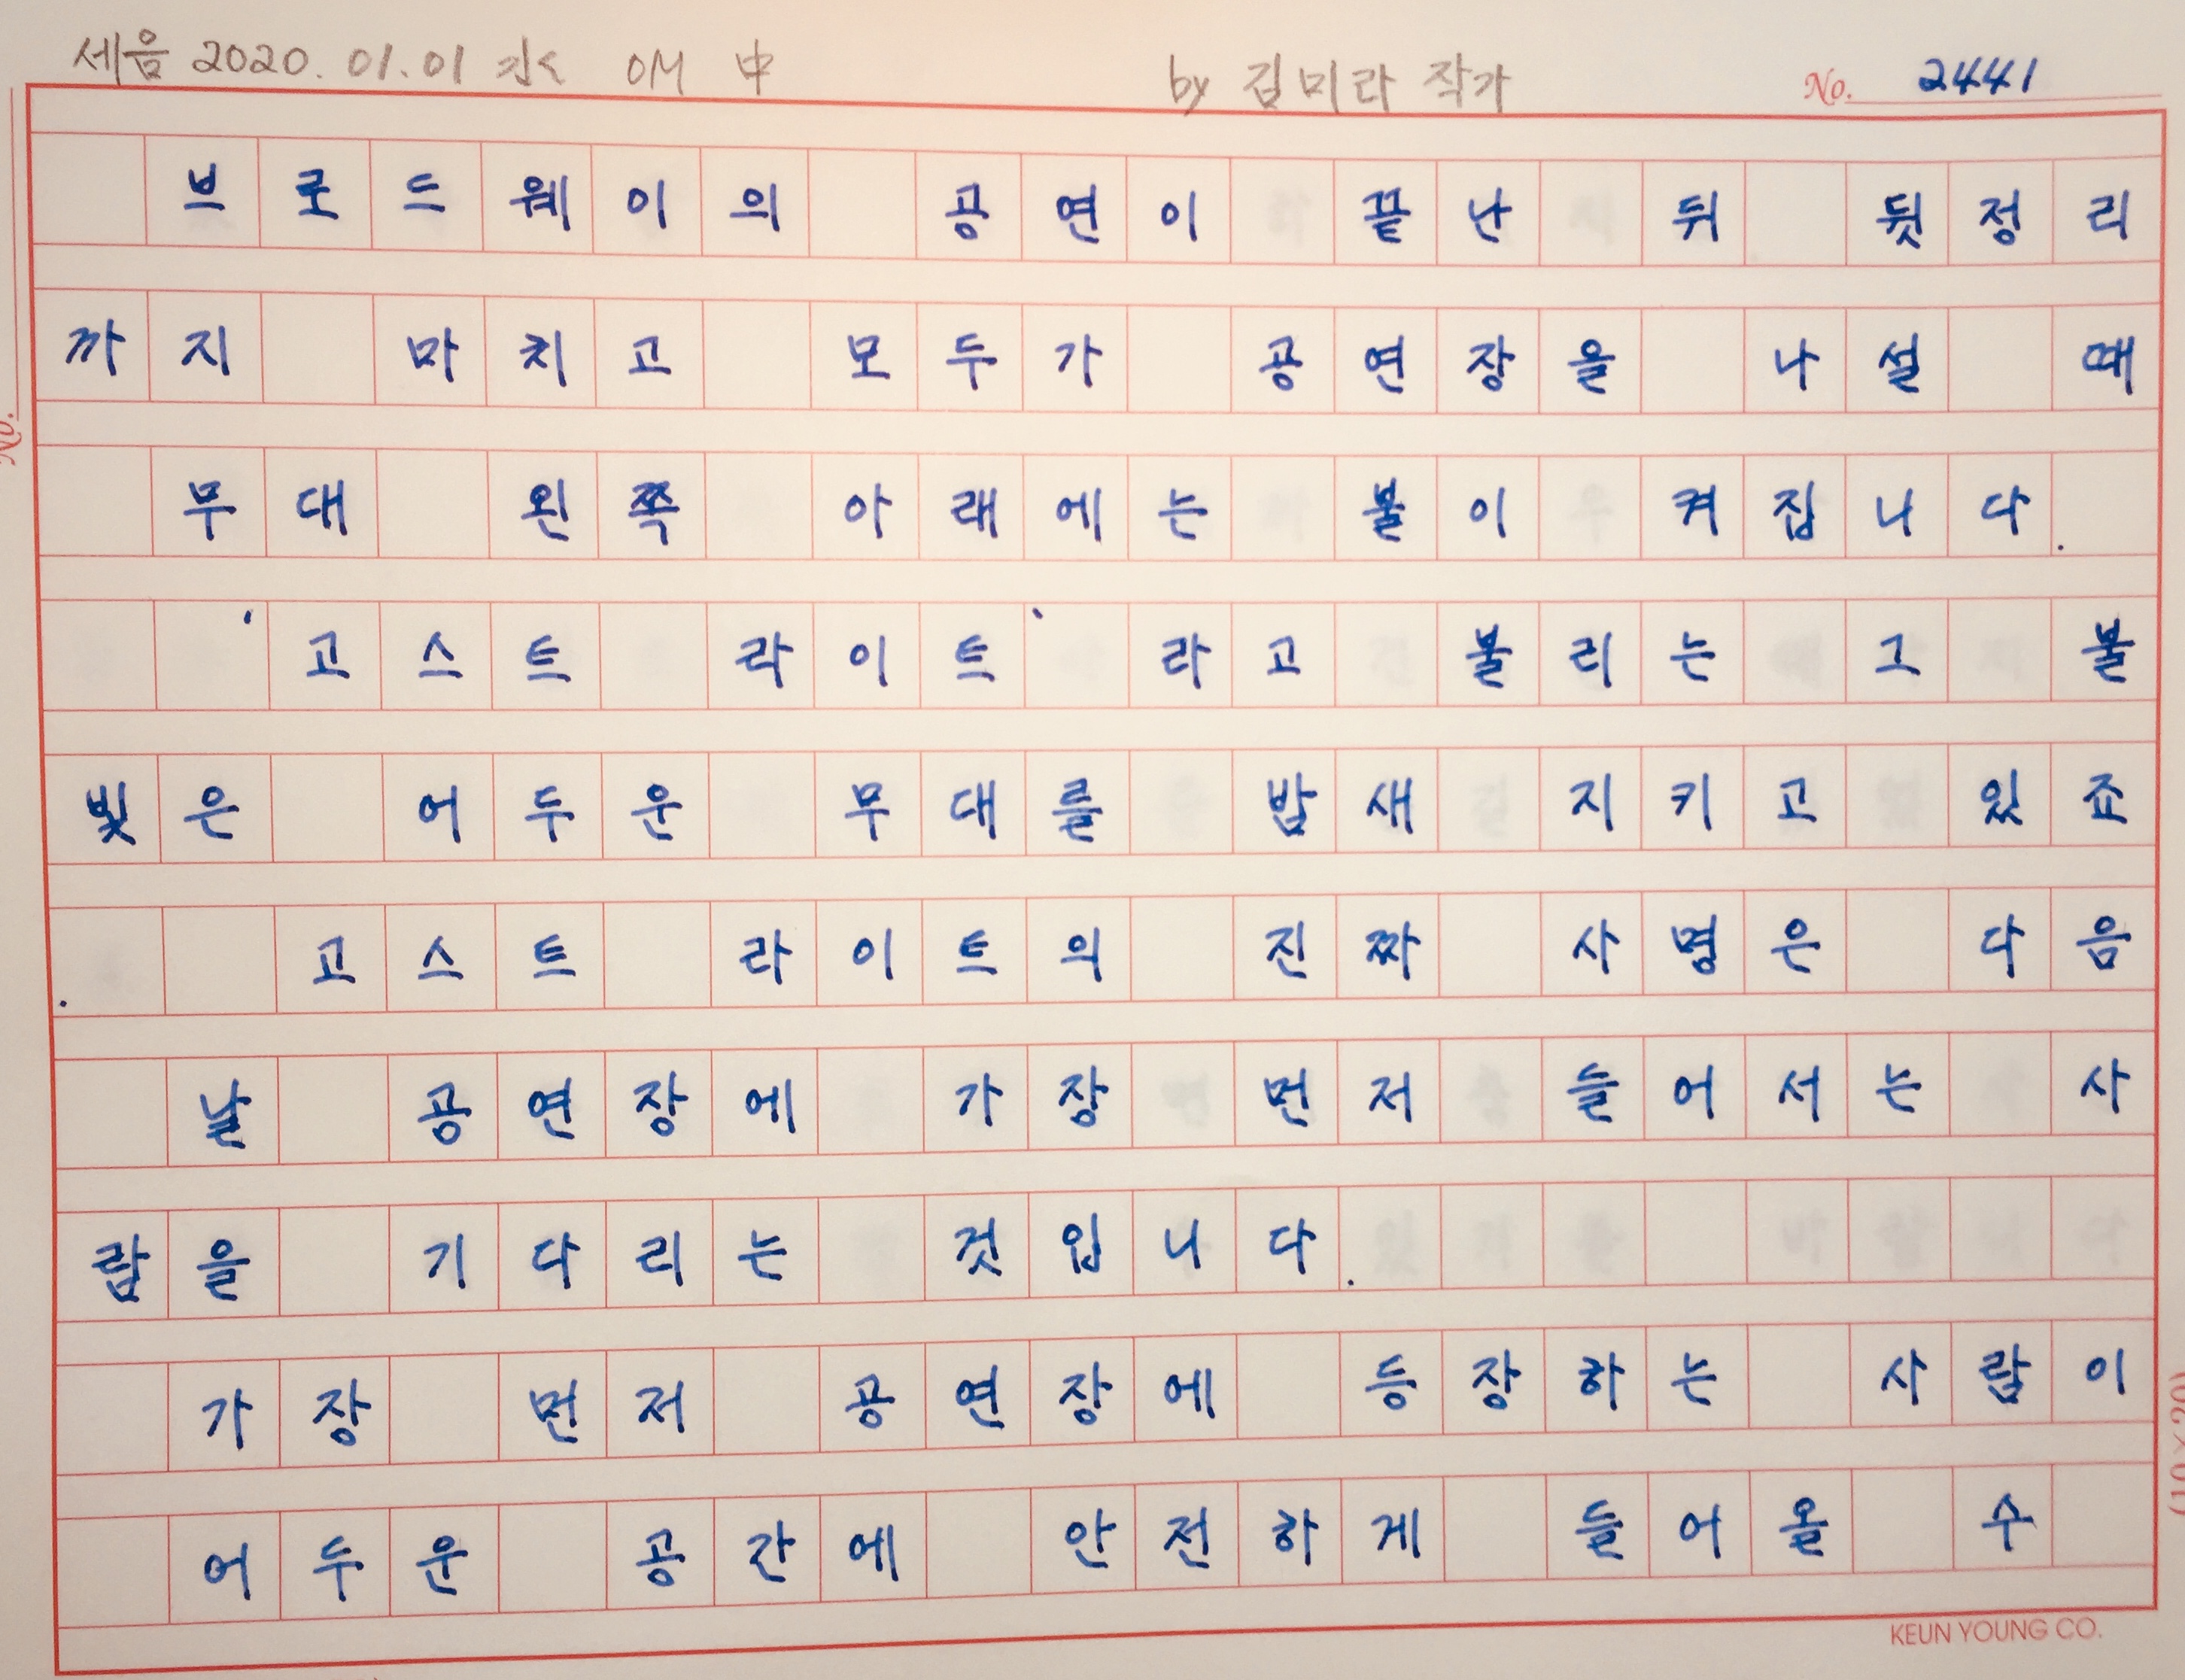 세음 2020. 01. 01 수 OM 中 by 김미라 작가 No. 2441
브로드웨이의 공연이 끝난 뒤 뒷정리
까지 마치고 모두가 공연장을 나설 때
무대 왼쪽 아래에는 불이 켜집니다.
'고스트 라이트'라고 불리는 그 불
빛은 어두운 무대를 밤새 지키고 있죠
. 고스트 라이트의 진짜 사명은 다음
날 공연장에 가장 먼저 들어서는 사
람을 기다리는 것입니다.
가장 먼저 공연장에 등장하는 사람이
어두운 공간에 안전하게 들어올 수
KEUN YOUNG CO.
No.